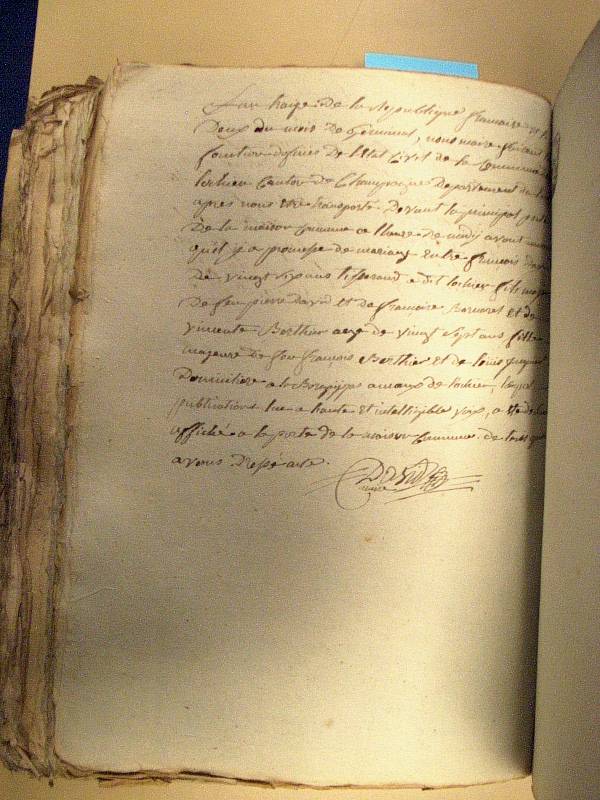 Lan treize de la République francaise et le
Deux du mois De Germinal, nous maire faisant
fonction dofficier de lEtat Civil de la Commune
lochieu Canton de Champagne Departement de
apres nous etre transporté Devant la principal porte
De la maison Commune a lheure de midy avons
quil y a promesse de mariage entre francois david
De vingt six ans tisserand a dit lochieu fils majeur
De feu pierre david et de françoise et de
vincente Berthier agee de vingt sept ans fille
majeure de feu françois Berthier et de louise
Domiciliée a hameaux de lochieu, laquel
publications lue a haute et intelligible voix, a ete de
affiché a la porte de la maison Commune. de tout quoi
avons Dressé acte.
David
maire